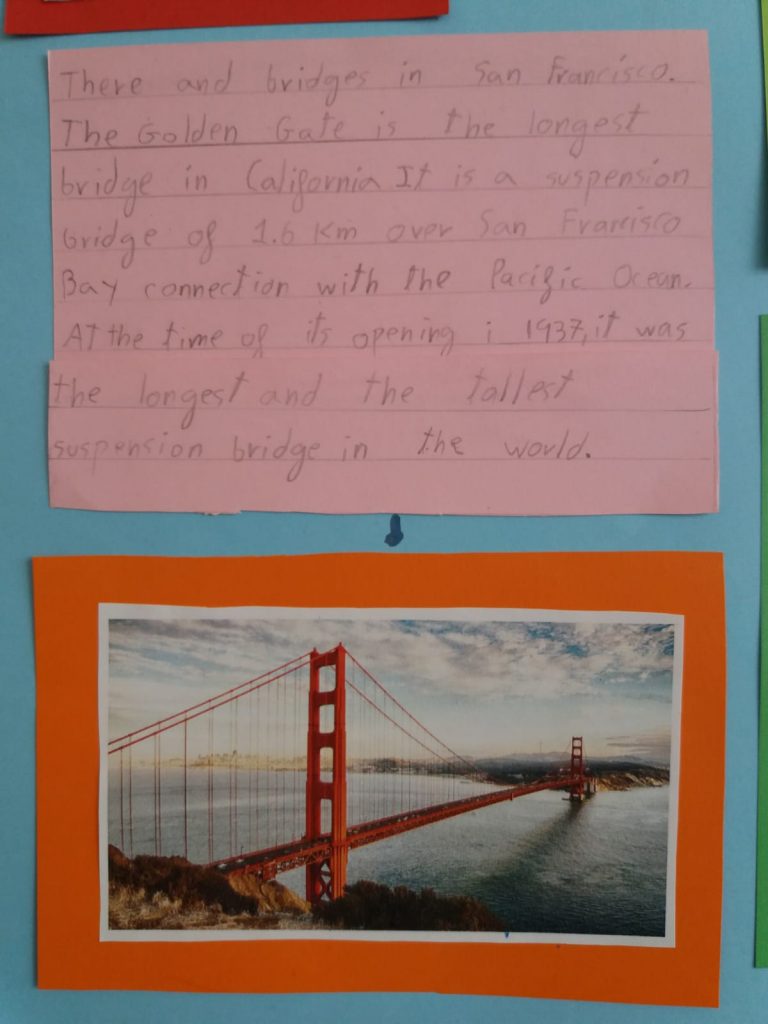 There and bridges in San Francisco.
The Golden Gate is the longest
bridge in California It is a suspension
bridge of 1.6 Km over San Francisco
Bay connection with the Pacific Ocean.
At the time of its opening i 1937, it was
the longest and the tallest
suspension bridge in the world.